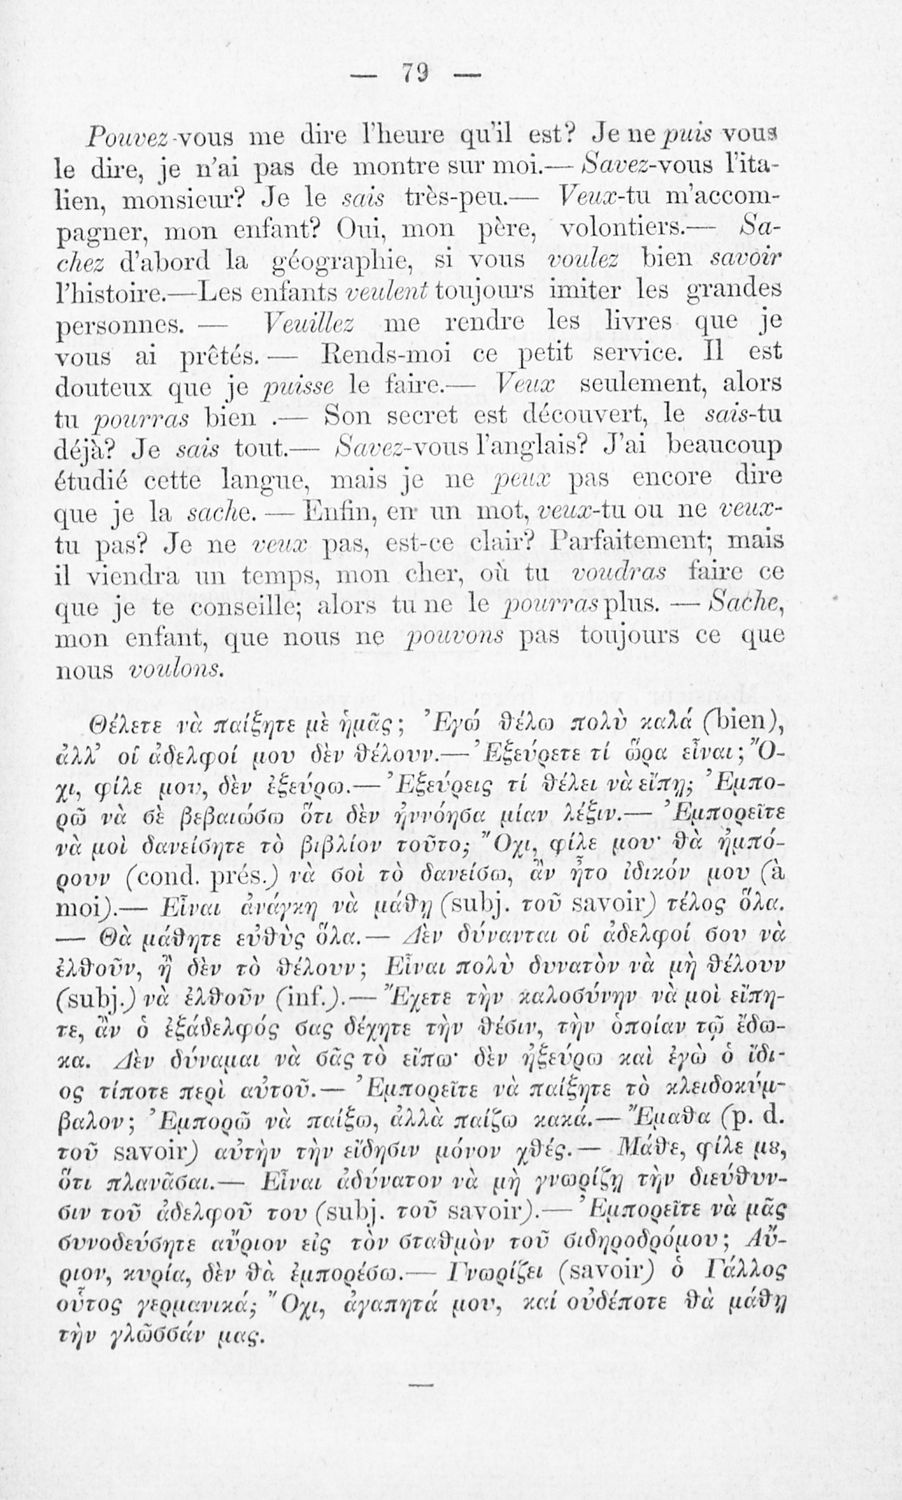 — 79 —
Pouvez-vous me dire l'heure qu'il est? Je ne puis vous
le dire, je n'ai pas de montre sur moi.— Savez-vous l'ita-
lien, monsieur? Je le sais très-peu.— Veux-tu m'accom-
pagner, mon enfant? Oui, mon père, volontiers.— Sa-
chez d'abord la géographie, si vous voulez bien savoir
l'histoire.—Les enfants veulent toujours imiter les grandes
personnes. — Veuillez me rendre les livres que je
vous ai prêtés. — Rends-moi ce petit service. Il est
douteux que je puisse le faire.— Veux seulement, alors
tu pourras bien .— Son secret est découvert, le sais-tu
déjà? Je sais tout.— Savez-vous l'anglais? J'ai beaucoup
étudié cette langue, mais je ne peux pas encore dire
que je la sache. — Enfin, en un mot, veux-tu ou ne veux-
tu pas? Je ne veux pas, est-ce clair? Parfaitement; mais
il viendra un temps, mon cher, où tu voudras faire ce
que je te conseille; alors tu ne le pourras plus. — Sache,
mon enfant, que nous ne pouvons pas toujours ce que
nous voulons.
Θέλετε νὰ παίξητε μὲ ἡμᾶς; Ἐγώ θέλω πολὺ καλά (bien),
ἀλλ' οἱ ἀδελφοί μου δὲν θέλουν.—Ἐξεύρετε τί ὥρα εἶναι; Ὄ-
χι, φίλε μου, δὲν ἐξεύρω.—Ἐξεύρεις τί θέλει νὰ εἴπῃ; Ἐμπο-
ρῶ νὰ σὲ βεβαιώσω ὅτι δὲν ἠννόησα μίαν λέξιν.— Ἐμπορεῖτε
νὰ μοὶ δανείσητε τὸ βιβλίον τοῦτο; Ὄχι, φίλε μου· θὰ ἠμπό-
ρουν (cond. prés.) νὰ σοὶ τὸ δανείσω, ἂν ἦτο ἰδικόν μου (à
moi).— Εἶναι ἀνάγκη νὰ μάθῃ (subj. τοῦ savoir) τέλος ὅλα.
— Θὰ μάθητε εὐθὺς ὅλα.— Δὲν δύνανται οἱ ἀδελφοί σου νὰ
ἐλθοῦν, ἢ δὲν τὸ θέλουν; Εἶναι πολὺ δυνατὸν νὰ μὴ θέλουν
(subj.) νὰ ἐλθοῦν (inf.).— Ἔχετε τὴν καλοσύνην νὰ μοὶ εἴπη-
τε, ἂν ὁ ἐξάδελφός σας δέχητε τὴν θέσιν, τὴν ὁποίαν τῷ ἔδω-
κα. Δὲν δύναμαι νὰ σᾶς τὸ εἴπω· δὲν ἠξεύρω καὶ ἐγὼ ὁ ἴδι-
ος τίποτε περὶ αὐτοῦ.— Ἐμπορεῖτε νὰ παίξητε τὸ κλειδοκύμ-
βαλον; Ἐμπορῶ νὰ παίξω, ἀλλὰ παίζω κακά.— Ἔμαθα (p. d.
τοῦ savoir) αὐτὴν τὴν εἴδησιν μόνον χθές.— Μάθε, φίλε μȣ,
ὅτι πλανᾶσαι.— Εἶναι ἀδύνατον νὰ μὴ γνωρίζῃ τὴν διεύθυν-
σιν τοῦ ἀδελφοῦ του (subj. τοῦ savoir).— Ἐμπορεῖτε νὰ μᾶς
συνοδεύσητε αὔριον εἰς τὸν σταθμὸν τοῦ σιδηροδρόμου; Αὔ-
ριον, κυρία, δὲν θὰ ἐμπορέσω.— Γνωρίζει (savoir) ὁ Γάλλος
οὗτος γερμανικά; Ὄχι, ἀγαπητά μου, καί οὐδέποτε θὰ μάθῃ
τὴν γλῶσσάν μας.
—